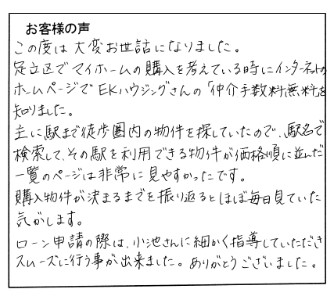 お客様の声
この度は大変お世話になりました。
足立区でマイホームの購入を考えている時にインターネットの
ホームページでEKハウジングさんの「仲介手数料無料」を
知りました。
主に駅まで徒歩圏内の物件を探していたので、駅名で
検索して、その駅を利用できる物件が価格順に並んだ
一覧のページは非常に見やすかったです。
購入物件が決まるまでを振り返るとほぼ毎日見ていた
気がします。
ローン申請の際は、小池さんに細かく指導していただき
スムーズに行う事が出来ました。ありがとうございました。